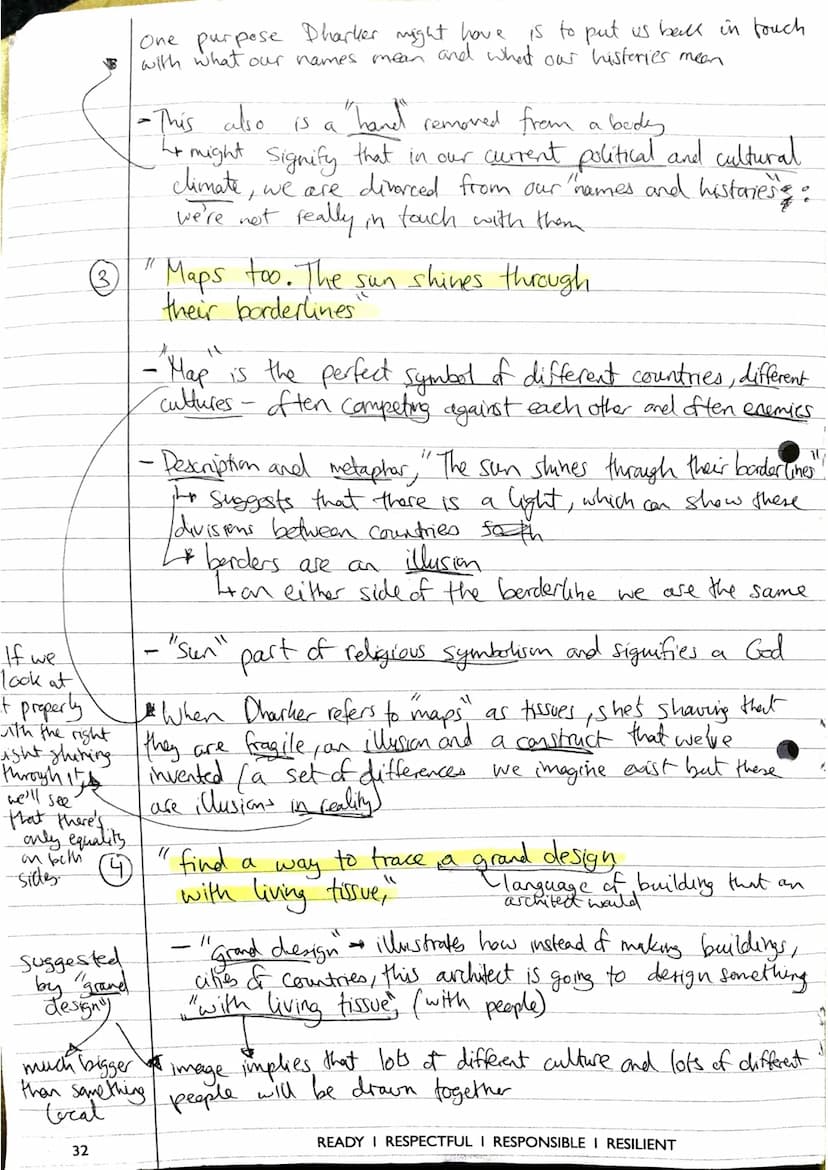 One purpose Dharker might have is to put us back in touch
with what our names mean and what our histories mean
- This also is a "hand" removed from a body
↳ might signify that in our current political and cultural
climate, we are divorced from our "names and histories":
we're not really in touch with them
③ "Maps too. The sun shines through
their borderlines"
- "Map" is the perfect symbol of different countries, different
cultures - often competing against each other and often enemies
- Description and metaphor, "The sun shines through their borderlines"
↳ suggests that there is a light, which can show these
divisions between countries
↳ borders are an illusion
↳ on either side of the borderline we are the same
- "Sun" part of religious symbolism and signifies a God
When Dharker refers to "maps" as tissues, she's showing that
they are fragile, an illusion and a construct that we've
invented (a set of differences we imagine exist but these
are illusions in reality)
If we
look at
t properly
ith the right
ight shining
through it,
we'll see
that there's
only equality
on both
sides.
④ "find a way to trace a grand design
with living tissue,"
language of building that an
architect would
- "Grand design" → illustrates how instead of making buildings,
cities of countries, this architect is going to design something
"with living tissue" (with people)
suggested
by "grand
design"
much bigger
than something
local
image implies that lots of different culture and lots of different
people will be drawn together
32
READY I RESPECTFUL I RESPONSIBLE I RESILIENT